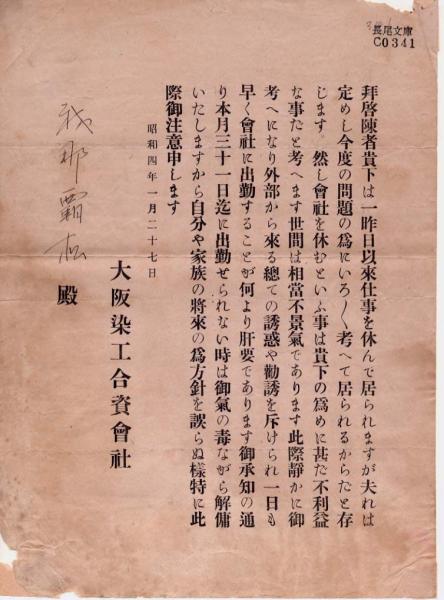 長尾文庫
C0341
拜啓陳者貴下は一昨日以來仕事を休んで居られますが夫れは
定めし今度の問題の爲にいろ〱考へて居られるからだと存
じます　然し會社を休むといふ事は貴下の爲めに甚だ不利益
な事だと考へます世間は相當不景氣であります此際靜かに御
考へになり外部から來る總ての誘惑や勸誘を斥けられ一日も
早く會社に出勤することが何より肝要であります御承知の通
り本月三十一日迄に出勤せられない時は御氣の毒ながら解傭
いたしますから自分や家族の將來の爲方針を誤らぬ樣特に此
際御注意申します
昭和四年一月二十七日
大阪染工合資會社
我那覇 殿